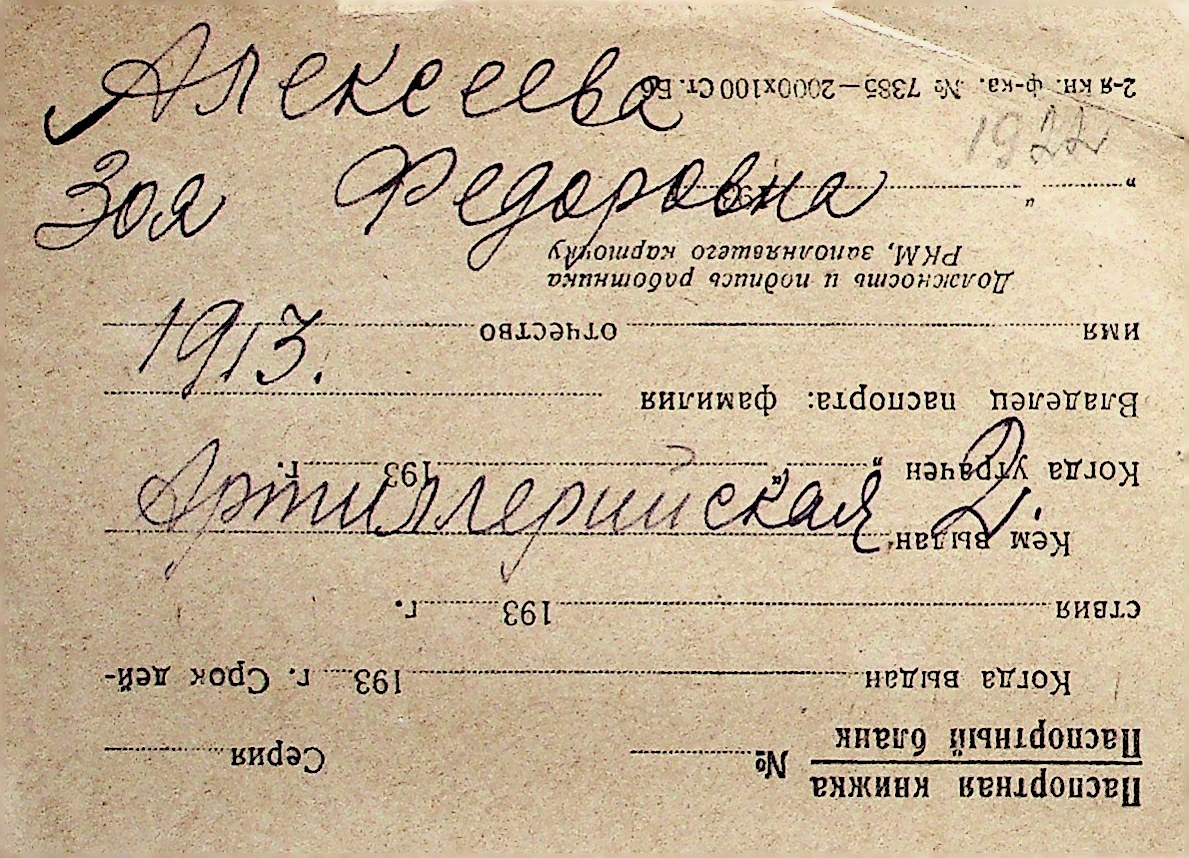 Алексеева
Зоя Федоровна
1922
1913.
Артиллерийская 2.
Паспортная книжка
Паспортный бланк
№ Серия
Когда выдан 193 г. Срок дей-
ствия 193 г.
Кем выдан
Когда утрачен „ “ 193 г.
Владелец паспорта: фамилия
имя отчество
Должность и подпись работника
РКМ, заполнявшего карточку
„ “ 193
2-я кн. ф-ка. № 7385—2000х100 Ст. Б6